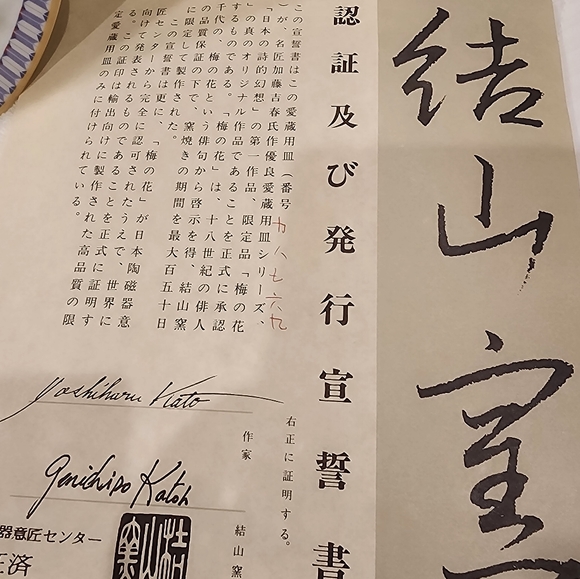 結山窯
認証及び発行宣誓書
この宣誓書はこの愛蔵用皿（番号 九八七六九
）が、名匠加藤吉春氏作優良愛蔵用皿シリーズ、
「日本の詩的幻想」の第一作品、限定品「梅の花
」の真のオリジナル作品であることを正式に承認
するものである。「梅の花」は、十八世紀の俳人
千代の、梅の花という俳句から啓示を得、結山窯
の品質保証の下で、窯焼きの期間を最大百五十日
に限定して製作された。
この宣誓書は更に、「梅の花」が日本陶磁器意
匠センターから完全に認可されたうえで、世界に
向けて発表されるものであることを正式に証明す
る。この証印は輸出向けに製作された高品質の限
定愛蔵用皿のみに付けられ
右正に証明する。
作家
Yoshiharu Kato
結山窯
Genichiro Katoh
結山窯
器意匠センター
正済